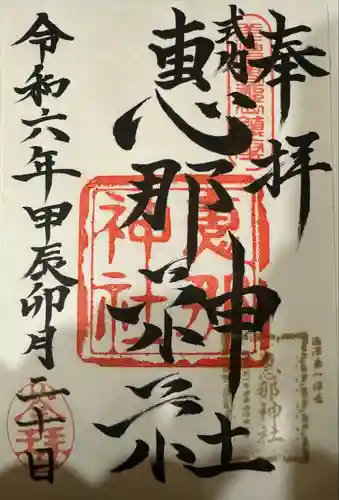 奉拝
式内
恵那神社
令和六年甲辰卯月二十日
恵那
神社
恵那神社
奉拝